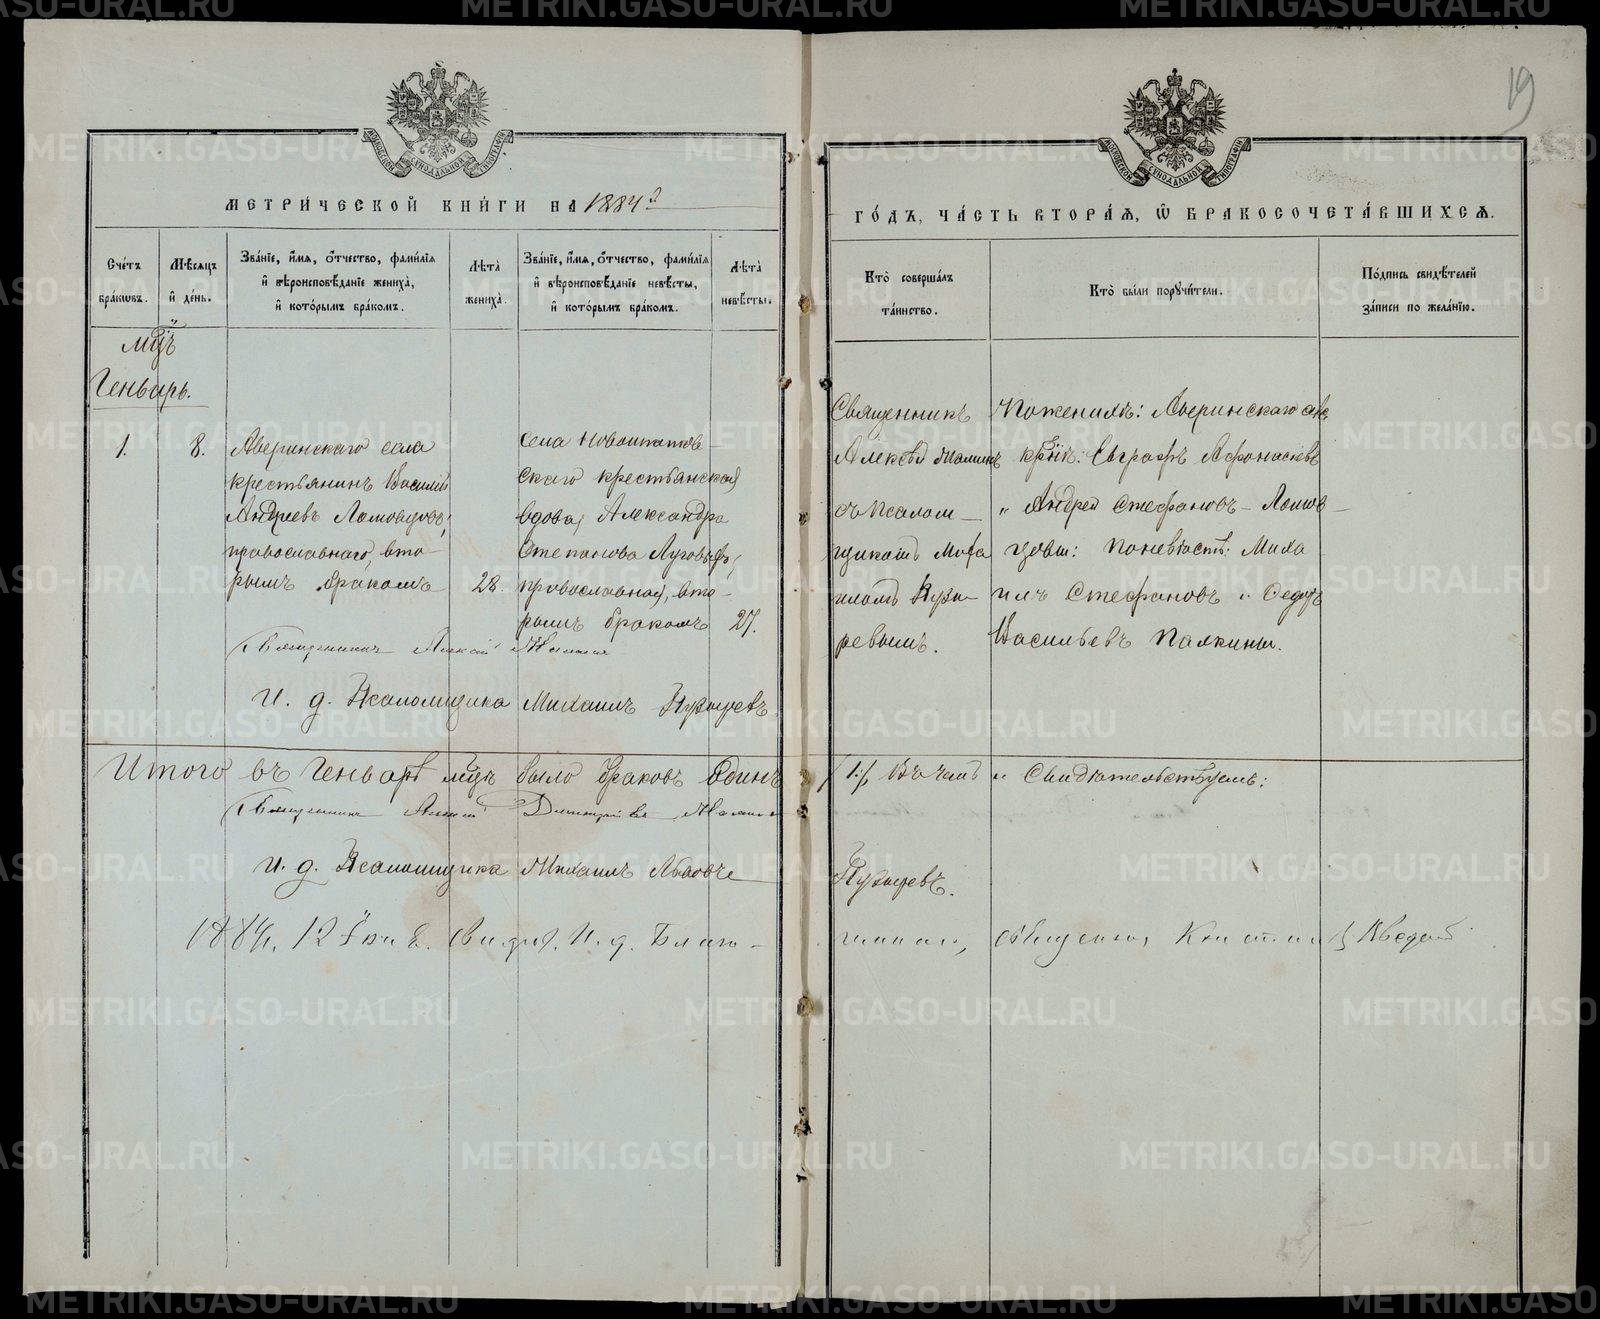 19
МОСКОВСКОЙ СУНОДАЛЬНОЙ ТИПОГРАФІИ
МОСКОВСКОЙ СУНОДАЛЬНОЙ ТИПОГРАФІИ
МЕТРИ́ЧЕСКОЙ КНИ́ГИ НА 1884й
ГО́ДЪ, ЧА́СТЬ ВТОРА́Я, Ѡ БРАКОСОЧЕТА́ВШИХСЯ.
Сче́тъ бра́ковъ.
Мѣ́сяцъ и де́нь.
Зва́ніе, и́мя, о́тчество, фами́лія и вѣроисповѣ́даніе жениха́, и кото́рымъ бра́комъ.
Лѣта̀ жениха̀.
Зва́ніе, и́мя, о́тчество, фами́лія и вѣроисповѣ́даніе невѣ́сты, и кото́рымъ бра́комъ.
Лѣта̀ невѣ́сты.
Кто̀ соверша́лъ та́инство.
Кто̀ бы́ли порꙋчи́тели.
По́дпись свидѣ́телей за́писи по жела́нію.
Мцъ
Генварь.
1.
8.
Аверинскаго села
крестьянинъ Василій
Андреевъ Ломовцовъ,
православнаго, вто-
рымъ бракомъ
28.
села Новоипатов-
скаго крестьянская
вдова, Александра
Степанова Луговыхъ,
православная, вто-
рымъ бракомъ
27.
Священникъ
Алексѣй
съ псалом-
щикомъ Миха
иломъ Пузы-
ревымъ.
По женихѣ: Аверинскаго села
крест: Евграфъ Афонасіевъ
и Андрей Стефановъ Ломов-
цовы: по невѣстѣ: Миха
илъ Стефановъ и Федоръ
Васильевъ Палкины.
Священникъ Алексій
И. д. Псаломщика Михаилъ Пузыревъ
Итого въ Генварѣ мцѣ было браковъ Одинъ /1./ Въ чемъ и Свидѣтельствуемъ:
Священникъ Алексій
И. д. Псаломщика Михаилъ Львовъ Пузыревъ.
1884, 12 И. д. Благо-